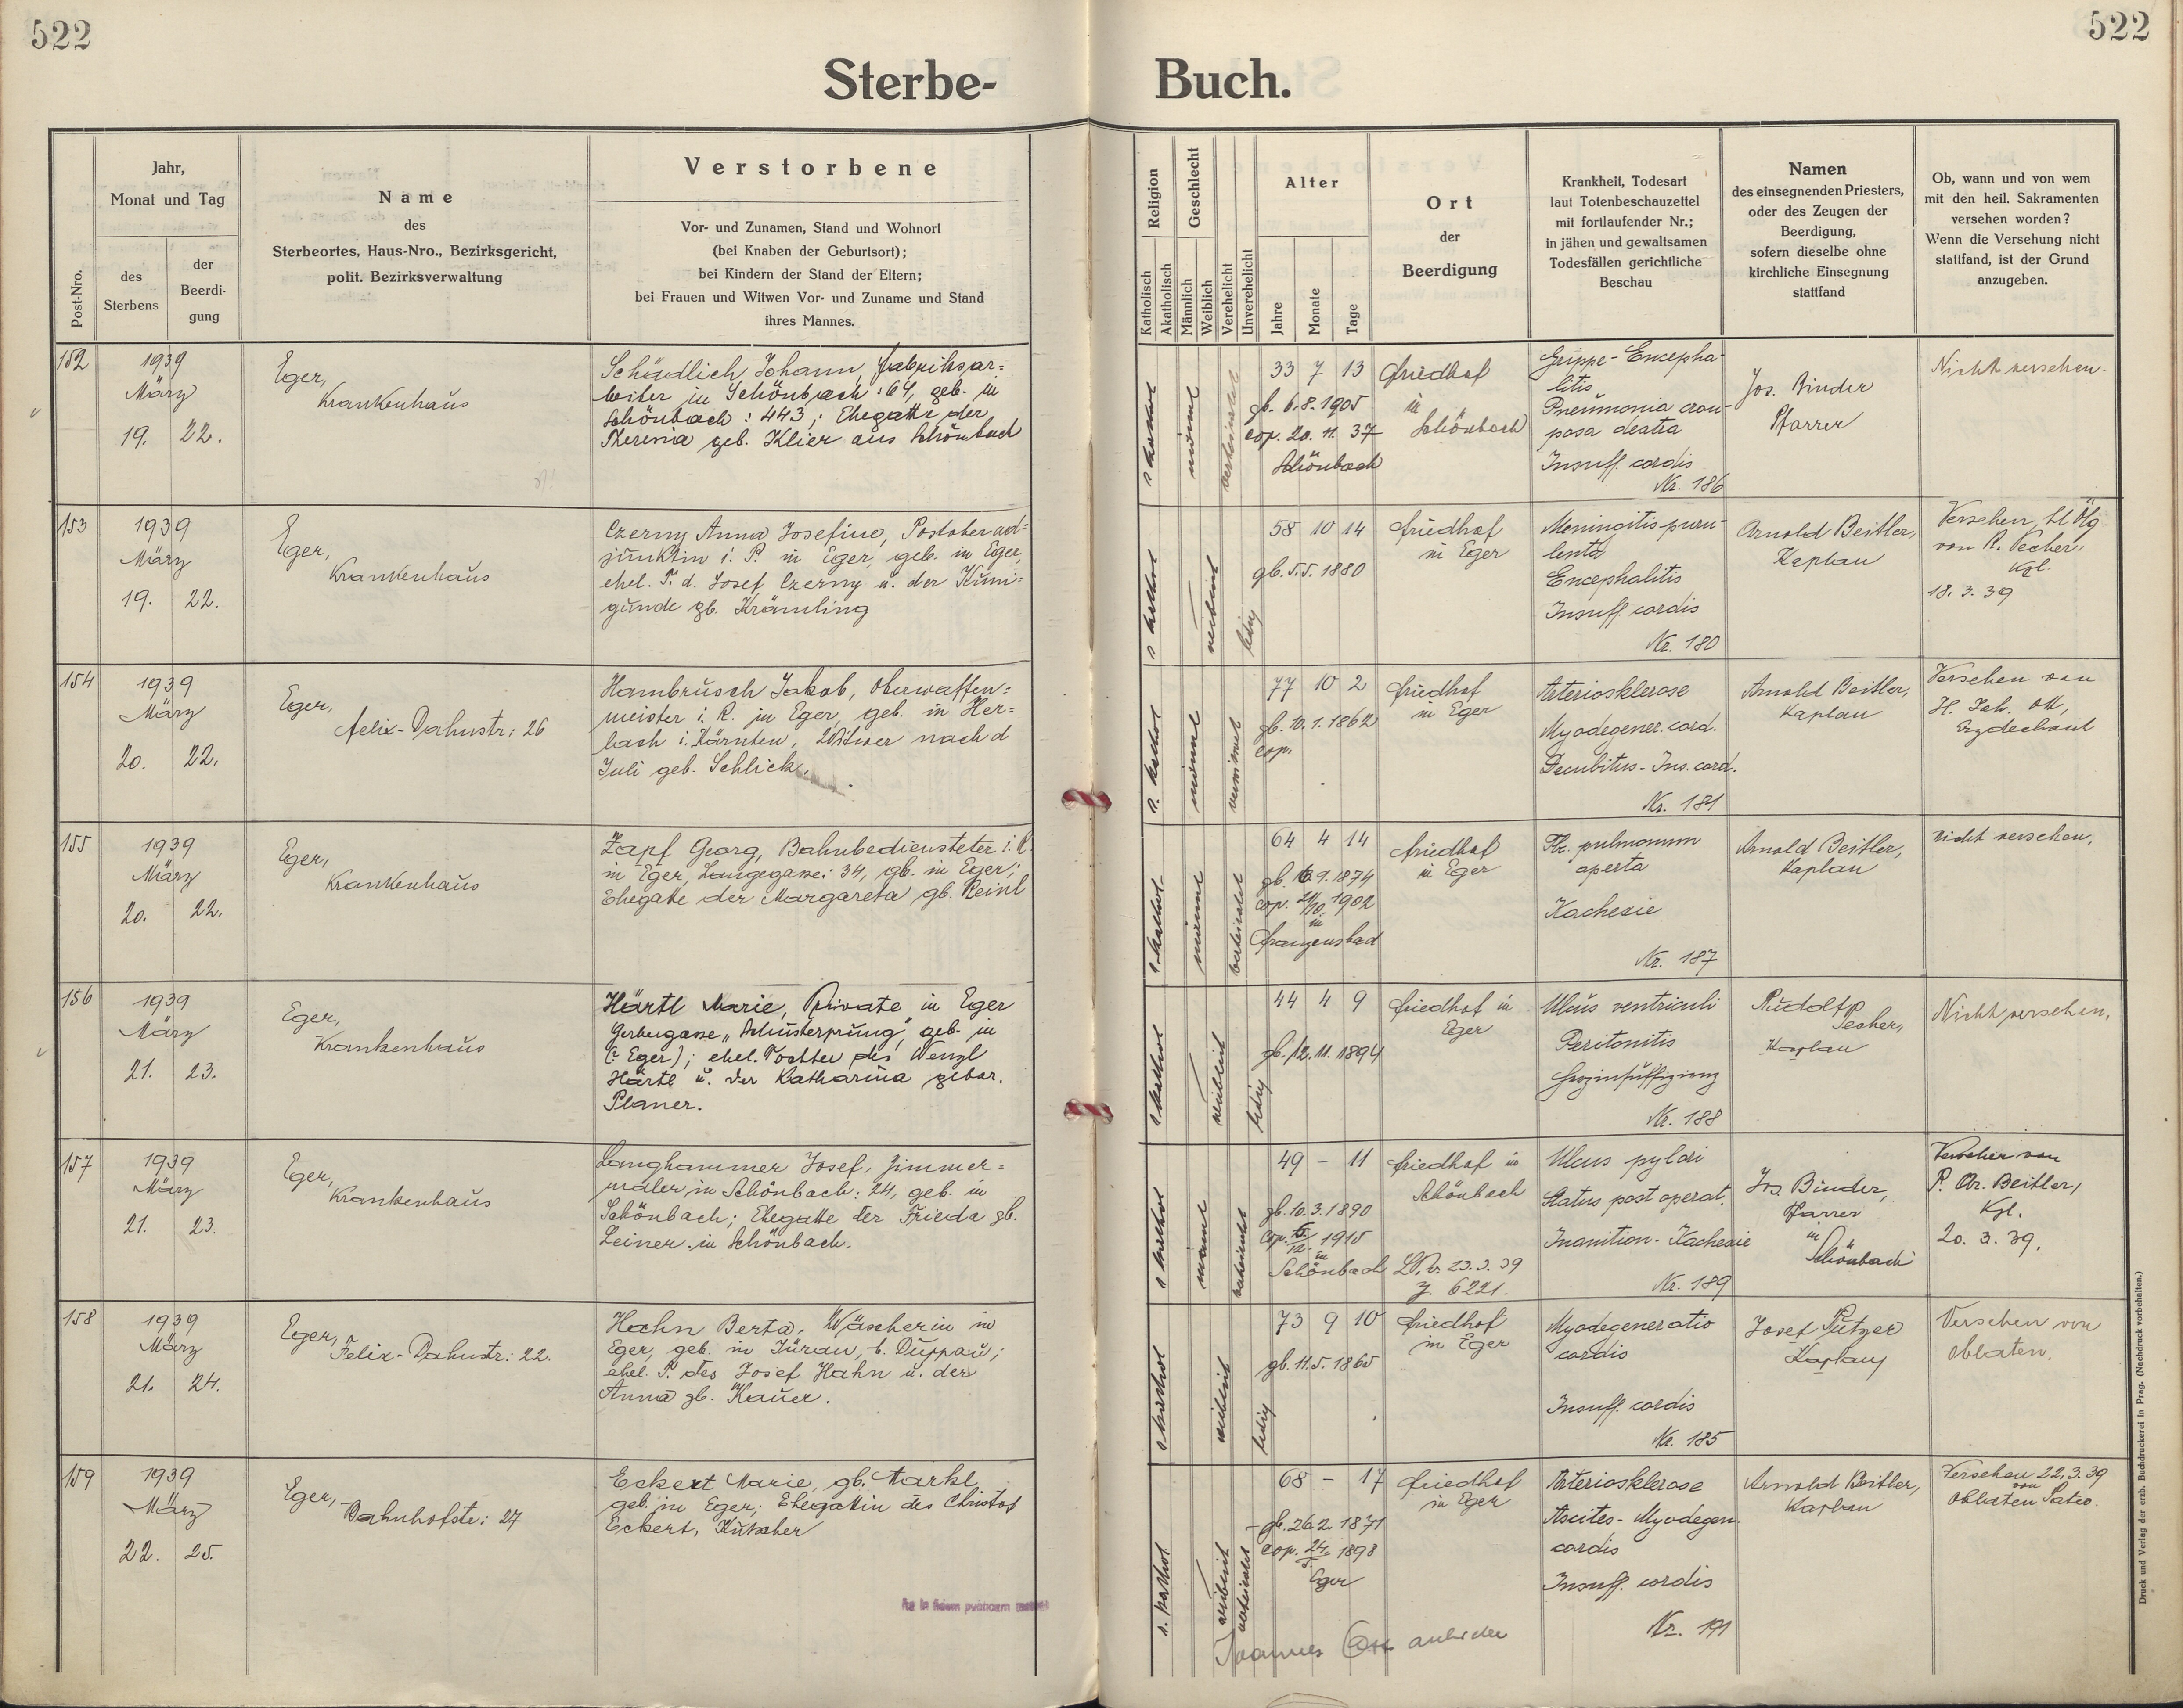 522
522
Sterbe-
Buch.
Post-Nro.
Jahr,
Monat und Tag
des
Sterbens
der
Beerdi-
gung
Name
des
Sterbeortes, Haus-Nro., Bezirksgericht,
polit. Bezirksverwaltung
Verstorbene
Vor- und Zunamen, Stand und Wohnort
(bei Knaben der Geburtsort);
bei Kindern der Stand der Eltern;
bei Frauen und Witwen Vor- und Zuname und Stand
ihres Mannes.
Religion
Katholisch
Akatholisch
Geschlecht
Männlich
Weiblich
Verehelicht
Unverehelicht
Alter
Jahre
Monate
Tage
Ort
der
Beerdigung
Krankheit, Todesart
laut Totenbeschauzettel
mit fortlaufender Nr.;
in jähen und gewaltsamen
Todesfällen gerichtliche
Beschau
Namen
des einsegnenden Priesters,
oder des Zeugen der
Beerdigung,
sofern dieselbe ohne
kirchliche Einsegnung
stattfand
Ob, wann und von wem
mit den heil. Sakramenten
versehen worden?
Wenn die Versehung nicht
stattfand, ist der Grund
anzugeben.
152
1939
März
19. 22.
Eger,
Krankenhaus
Schädlich Johann, Fabriksar=
beiter in Schönbach: 64, geb. in
Schönbach: 443; Ehegatte der
Theresia geb. Klier aus Schönbach
männl
33 7 13
gb. 6.8.1905
cop. 20. 11. 37
Schönbach
Friedhof
in
Schönbach
Grippe-Encepha-
litis
Pneumonia crou-
posa
Insuff. cordis
Nr. 186
Jos. Binder
Pfarrer
Nicht versehen.
153
1939
März
19. 22.
Eger,
Krankenhaus
Czerny Anna Josefine, Postoberad=
junktin i. P. in Eger, geb. in Eger,
ehel. T. d. Josef Czerny u. der Kuni=
gunde gb. Krämling
weiblich
ledig
58 10 14
gb. 5.5.1880
Friedhof
in Eger
Meningitis puru-
lenta
Encephalitis
Insuff. cordis
Nr. 180
Arnold Beitler,
Kaplan
Versehen hl Ölg
von R. Pecher,
Kpl.
18. 3. 39
154
1939
März
20. 22.
Eger,
Felix-Dahnstr: 26
Hambrusch Jakob, Oberwaffen=
meister i. R. in Eger, geb. in Her=
bach i. Kärnten, Witwer nach d
Juli geb. Schlick.
r. kathol
männl
77 10 2
gb. 10.1.1862
cop.
Friedhof
in Eger
Arteriosklerose
Myodegener. cord.
Decubitus - Ins. cord.
Nr. 181
Arnold Beitler,
Kaplan
Versehen von
H. Joh. Ott,
Erzdechant
155
1939
März
20. 22.
Eger,
Krankenhaus
Zapf Georg, Bahnbediensteter i. R.
in Eger, Langegasse: 34, gb. in Eger;
Ehegatte der Margareta gb. Reinl
r. kathol
männl
64 4 14
gb. 6.9.1874
cop. 21/10. 1902
in
Franzensbad
Friedhof
in Eger
Tb. pulmonum
aperta
Kachexie
Nr. 187
Arnold Beitler,
Kaplan
Nicht versehen.
156
1939
März
21. 23.
Eger,
Krankenhaus
Härtl Marie, Private in Eger
Gerbergasse „Schusterprung", geb. in
(: Eger); ehel. Tochter des Wenzl
Härtl u. der Katharina gebor.
Planer.
r kathol
weiblich
ledig
44 4 9
gb. 12. 11. 1894
Friedhof in
Eger
Ulcus ventriculi
Peritonitis
Herzinsuffizienz
Nr. 188
Rudolf
Pecher,
Kaplan
Nicht versehen.
157
1939
März
21. 23.
Eger,
Krankenhaus
Langhammer Josef, Zimmer=
maler in Schönbach: 24, geb. in
Schönbach; Ehegatte der Frieda gb.
Leiner in Schönbach.
r kathol
männl
49 - 11
gb. 10.3.1890
cop. 1915
in
Schönbach
Friedhof in
Schönbach
23.3.39
Z. 6221.
Ulcus pylori
Status post operat.
Inanition - Kachexie
Nr. 189
Jos. Binder,
Pfarrer
in
Schönbach
Versehen von
P. Ar. Beitler,
Kpl.
20. 3. 39.
158
1939
März
21. 24.
Eger,
Felix-Dahnstr: 22.
Hahn Berta, Wäscherin in
Eger, geb. in Jurau, b. Duppau;
ehel. T. des Josef Hahn u. der
Anna gb. Kauer.
r kathol
weiblich
ledig
73 9 10
gb. 11.5.1865
Friedhof
in Eger
Myodegeneratio
cordis
Insuff. cordis
Nr. 185
Josef Putzer
Kaplan
Versehen von
Oblaten.
159
1939
März
22. 25.
Eger,
Bahnhofstr: 27
Eckert Marie, gb. Markl
geb. in Eger; Ehegattin des Christof
Eckert, Kutscher
r. kathol
weiblich
68 - 17
gb. 26.2.1871
cop. 24. 1898
Eger
Friedhof
in Eger
Arteriosklerose
Ascites - Myodegen.
cordis
Insuff. cordis
Nr. 191
Arnold Beitler,
Kaplan
Versehen 22.3.39
von
Oblaten Patro.
Joannes Ott
Druck und Verlag der erzb. Buchdruckerei in Prag. (Nachdruck vorbehalten.)